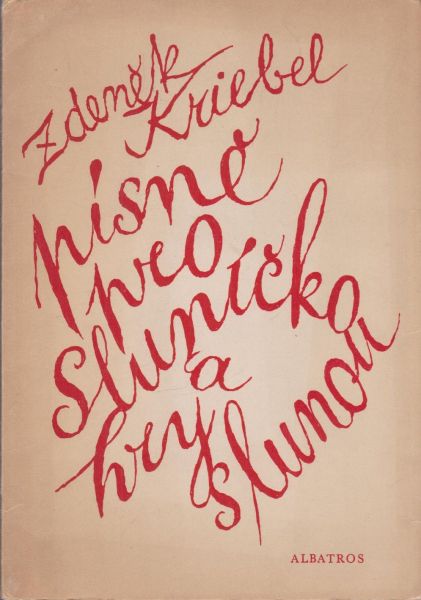 Zdeněk
Kriebel
písně
pro
Sluníčko
a
hry
s lunou
ALBATROS